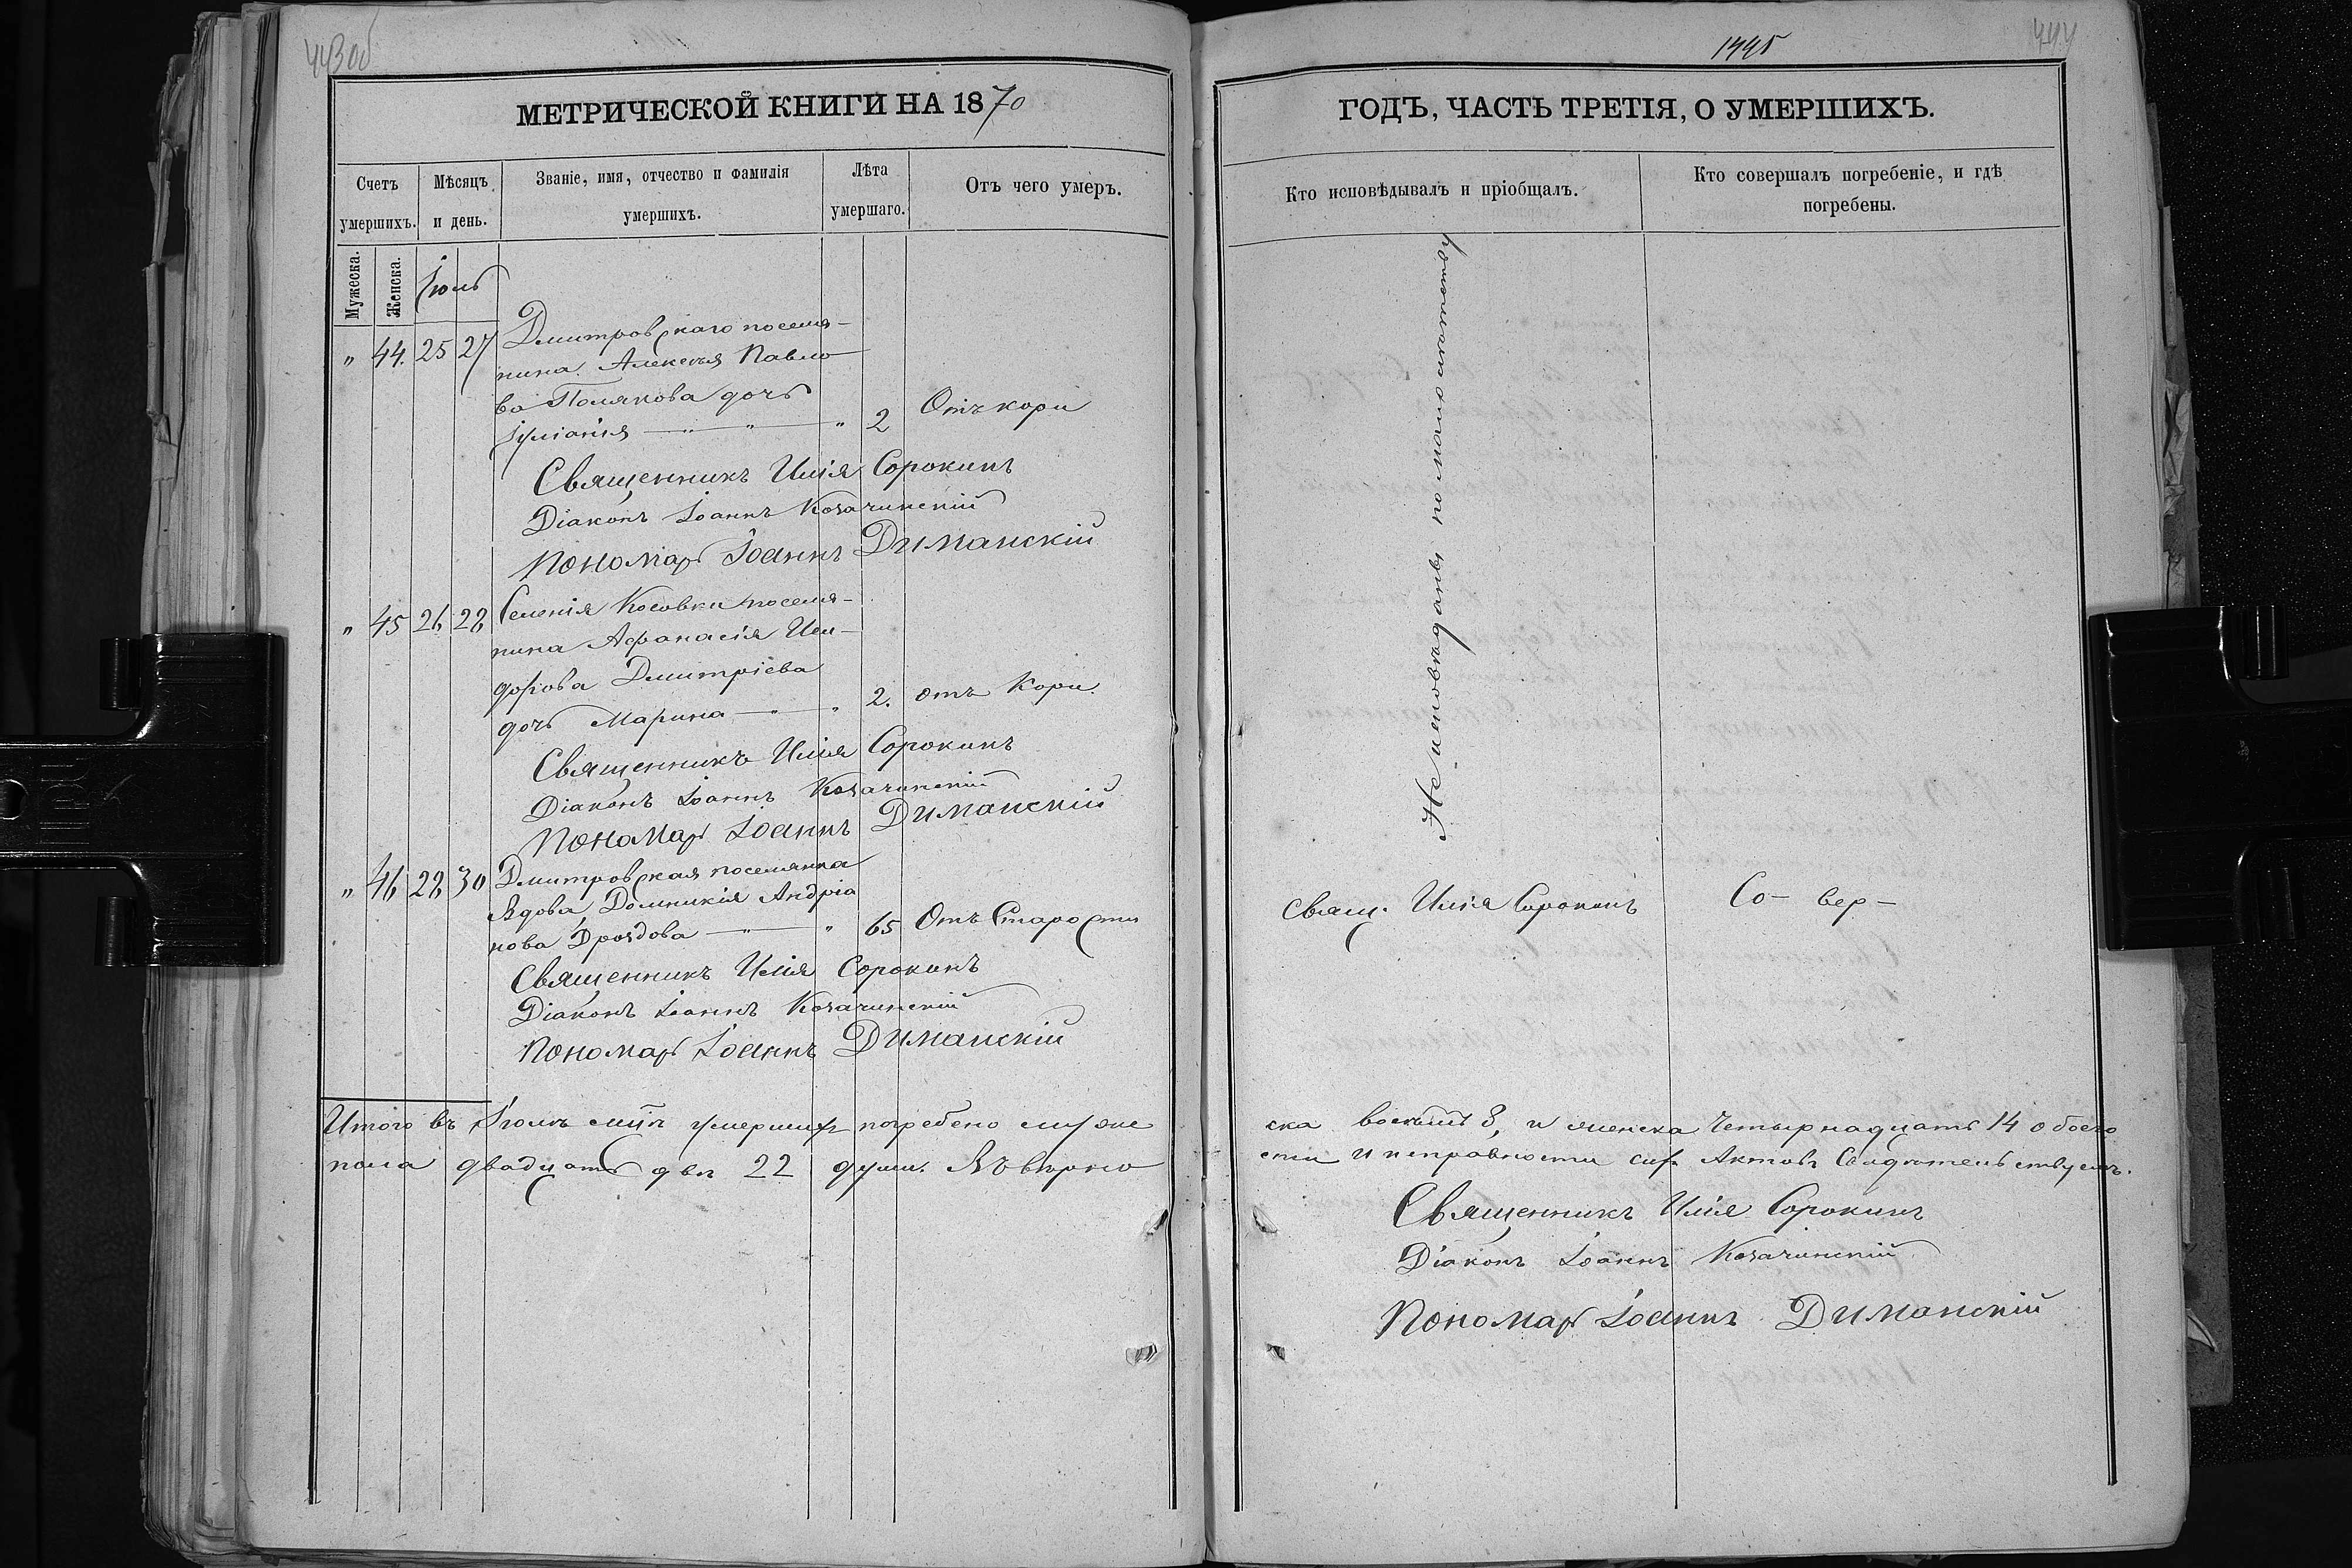 443об
МЕТРИЧЕСКОЙ КНИГИ НА 1870
Счетъ умершихъ.
Мѣсяцъ и день.
Званіе, имя, отчество и фамилія умершихъ.
Лѣта умершаго.
Отъ чего умеръ.
Мужеска.
Женска.
Іюль
" 44. 25 27 Дмитровскаго поселя-
нина Алексѣя Павло
ва Полякова дочь
Іуліанія — " — " — " 2 Отъ кори
Священникъ Илія Сорокинъ
Діаконъ Іоаннъ Козачинскій
Пономарь Іоаннъ Диманскій
" 45 26 28 Селенія Косовки поселя-
нина Афанасія Иси-
дорова Дмитріева
дочь Марина — " — " 2. отъ Кори.
Священникъ Илія Сорокинъ
Діаконъ Іоаннъ Козачинскій
Пономарь Іоаннъ Диманскій
" 46 28 30 Дмитровская поселянка
Вдова Домникія Андріа
нова Дроздова — " — " 65 Отъ Старости
Священникъ Илія Сорокинъ
Діаконъ Іоаннъ Козачинскій
Пономарь Іоаннъ Диманскій
Итого въ Іюлѣ м͠цѣ умершихъ погребено муже
пола двадцать двѣ 22 души. Въ вѣрно
1445
444
ГОДЪ, ЧАСТЬ ТРЕТІЯ, О УМЕРШИХЪ.
Кто исповѣдывалъ и пріобщалъ.
Кто совершалъ погребеніе, и гдѣ погребены.
Не исповѣданы по малолѣтству
Свящ. Илія Сорокинъ Со- вер-
ска восѣмь 8, и женска четырнадцать 14 обоего
сти и исправности сихъ Актовъ Свидѣтельствуемъ.
Священникъ Илія Сорокинъ
Діаконъ Іоаннъ Козачинскій
Пономарь Іоаннъ Диманскій